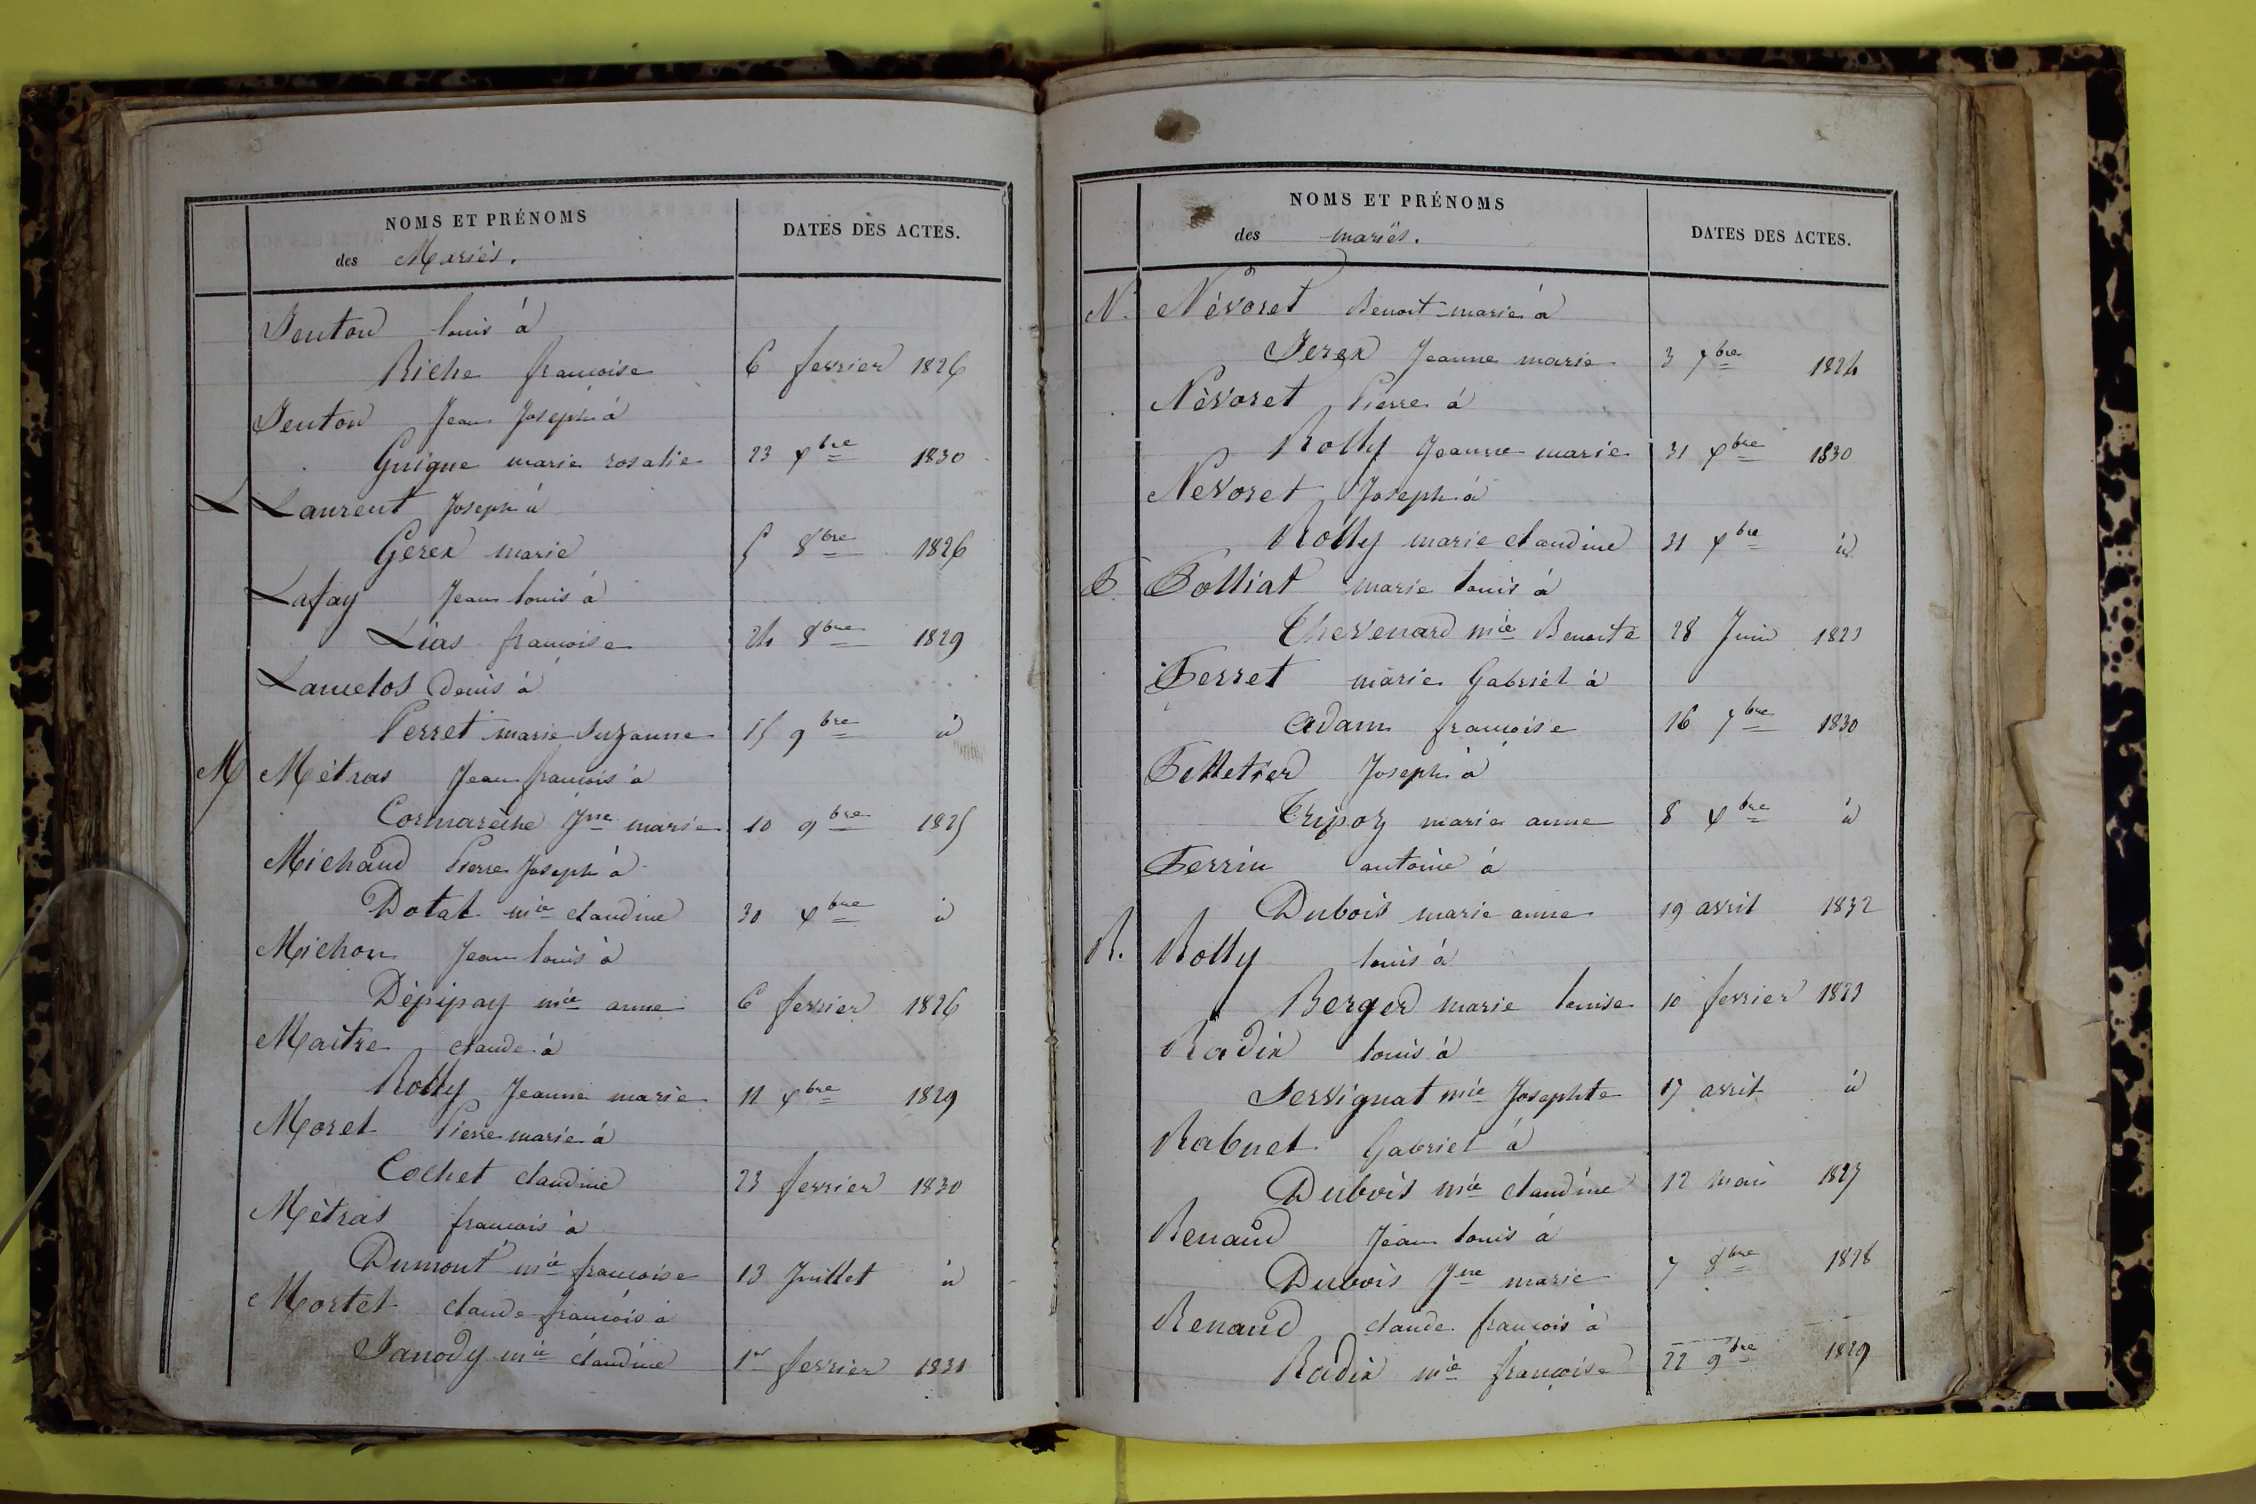 NOMS ET PRÉNOMS
des Mariés.
DATES DES ACTES.
Jenton louis à
Riche françoise 6 fevrier 1826
Jenton Jean Joseph à
Guigue marie rosalie 23 xbre 1830
L Laurent Joseph à
Gerex marie 5 8bre 1826
Lafay Jean louis à
Lias françoise 24 8bre 1829
Lancelos denis à
Perret marie Suzanne 15 9bre id
M Métras Jean françois à
Cormarèche Jne marie 10 9bre 1825
Michaud Pierre Joseph à
Dotal mie claudine 30 xbre id
Michon Jean louis à
Dépipay mie anne 6 fevrier 1826
Maitre claude à
Rolly Jeanne marie 11 xbre 1829
Moret Pierre marie à
Cochet claudine 23 fevrier 1830
Métras françois à
Dumont mie françoise 13 Juillet id
Mortel claude françois à
Janody mie claudine 1er fevrier 1831
NOMS ET PRÉNOMS
des mariés.
DATES DES ACTES.
N. Névoret Benoit marie à
Jerex Jeanne marie 3 7bre 1824
Névoret Pierre à
Rolly Jeanne marie 31 xbre 1830
Névoret Joseph à
Rolly marie claudine 31 xbre id
P. Polliat marie louis à
Thevenard mie Benoite 28 Juin 1823
Perret marie Gabriel à
Adam françoise 16 7bre 1830
Pelletier Joseph à
Tripoz marie anne 8 xbre id
Perrin antoine à
Dubois marie anne 19 avril 1832
R. Rolly louis à
Berger marie louise 10 fevrier 1823
Radix louis à
Servignat mie Josephte 17 avril id
Rabuel Gabriel à
Dubois mie claudine 12 mai 1825
Renaud Jean louis à
Dubois Jne marie 7 8bre 1828
Renaud claude françois à
Radix mie françoise 22 9bre 1829